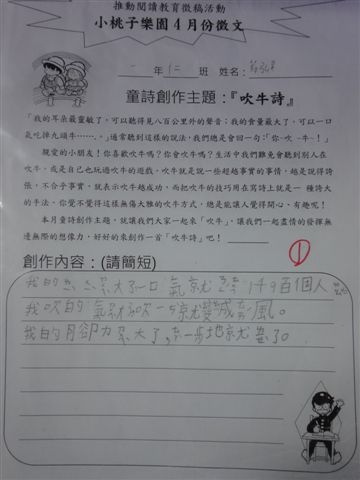 推動閱讀教育徵稿活動
小桃子樂園4月份徵文
一年仁班 姓名：
童詩創作主題：『吹牛詩』
「我的耳朵最靈敏了，可以聽得見八百公里外的聲音；我的食量最大了，可以一口
氣吃掉九頭牛……。」通常聽到這樣的說法，我們總是會回一句：「你-吹-牛-！」
親愛的小朋友！你喜歡吹牛嗎？你會吹牛嗎？生活中我們難免會聽到別人在
吹牛，或是自己也玩過吹牛的遊戲，吹牛就是說一些超越事實的事情，越是說得誇
張，不合乎事實，就表示吹牛越成功，而把吹牛的技巧用在寫詩上就是一種誇大
的手法，你愛不覺得這樣無傷大雅的吹牛方式，總是能讓人覺得開心、有趣呢！
本月童詩創作主題，就讓我們大家一起來「吹牛」，讓我們一起盡情的發揮無
邊無際的想像力，好好的來創作一首「吹牛詩」吧！
①
創作內容：(請簡短)
我的ㄌㄧˋ氣ㄗㄨㄟˋ大了一口氣ㄐㄧㄡˋ149百個人
我吹的氣ㄗㄨㄟˋ吹一ㄎㄡˇ就變成颱風。
我的腳力ㄗㄨㄟˋ大了，一步地就